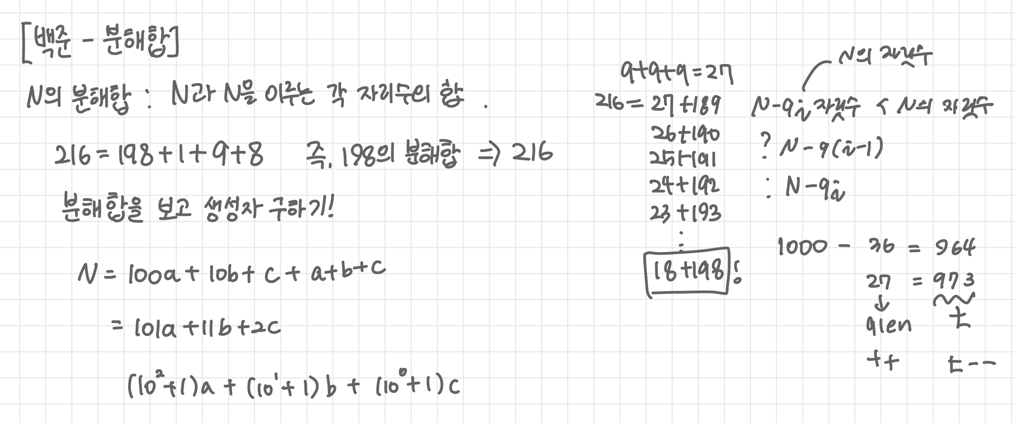 [백준 - 분해합]
N의 분해합 : N과 N을 이루는 각 자리수의 합.
216 = 198 + 1 + 9 + 8 즉, 198의 분해합 => 216
분해합을 보고 생성자 구하기!
N = 100a + 10b + c + a+b+c
= 101a + 11b + 2c
(10²+1)a + (10¹+1)b + (10⁰+1)c
9+9+9=27
216 = 27+189
26+190
25+191
24+192
23+193
⋮
18+198!
N의 자릿수
N-9i 자릿수 < N의 자릿수
? N-9(i-1)
: N-9i
1000 - 36 = 964
27 = 973
↓
9len t
++ t--